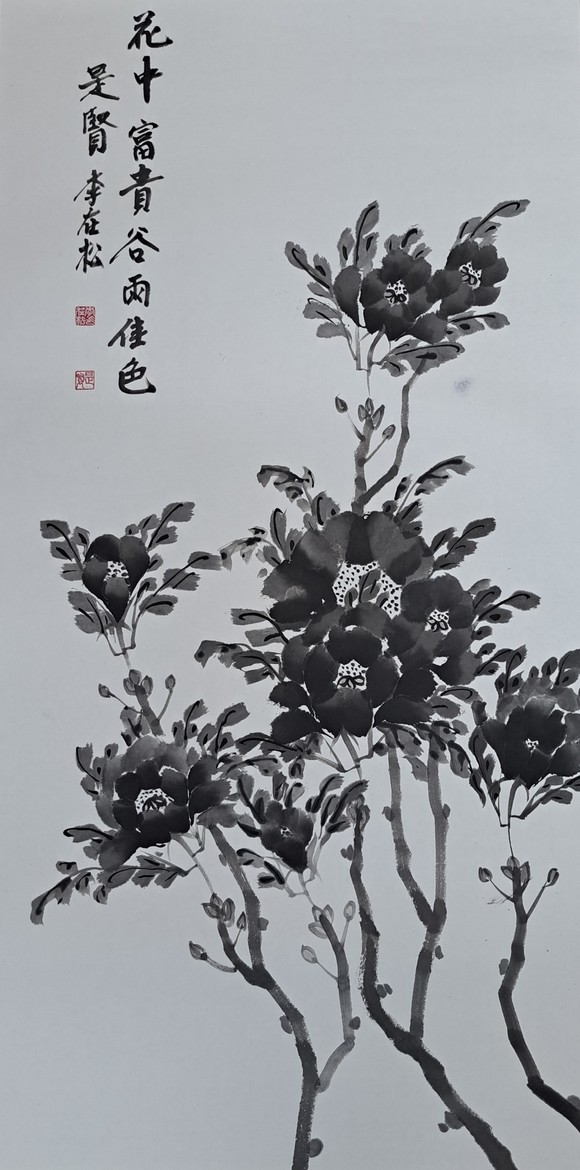 花中富貴谷雨佳色
是賢 李在松